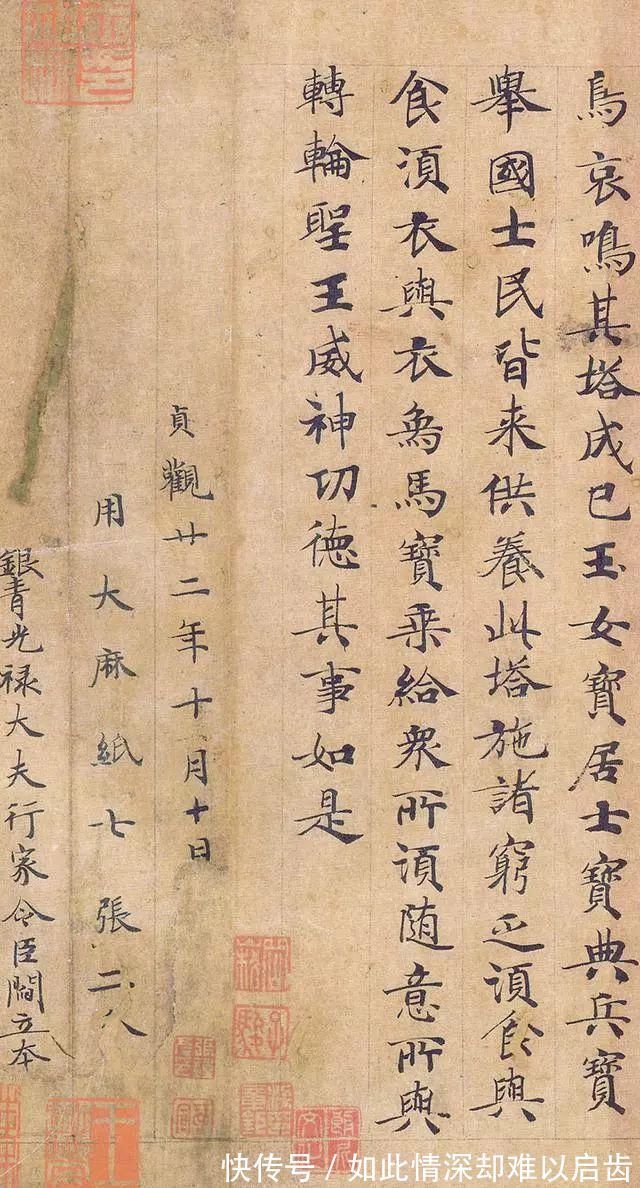 鳥哀鳴其塔成已玉女寶居士寶典兵寶
舉國士民皆来供養此塔施諸窮乏湏食與
食湏衣與衣象馬寶乗給衆所湏随意所與
轉輪聖王威神功德其事如是
貞觀廿二年十月十日
用大麻紙七張二分
銀青光禄大夫行家令臣閻立本
快传号 / 如此情深却难以启齿